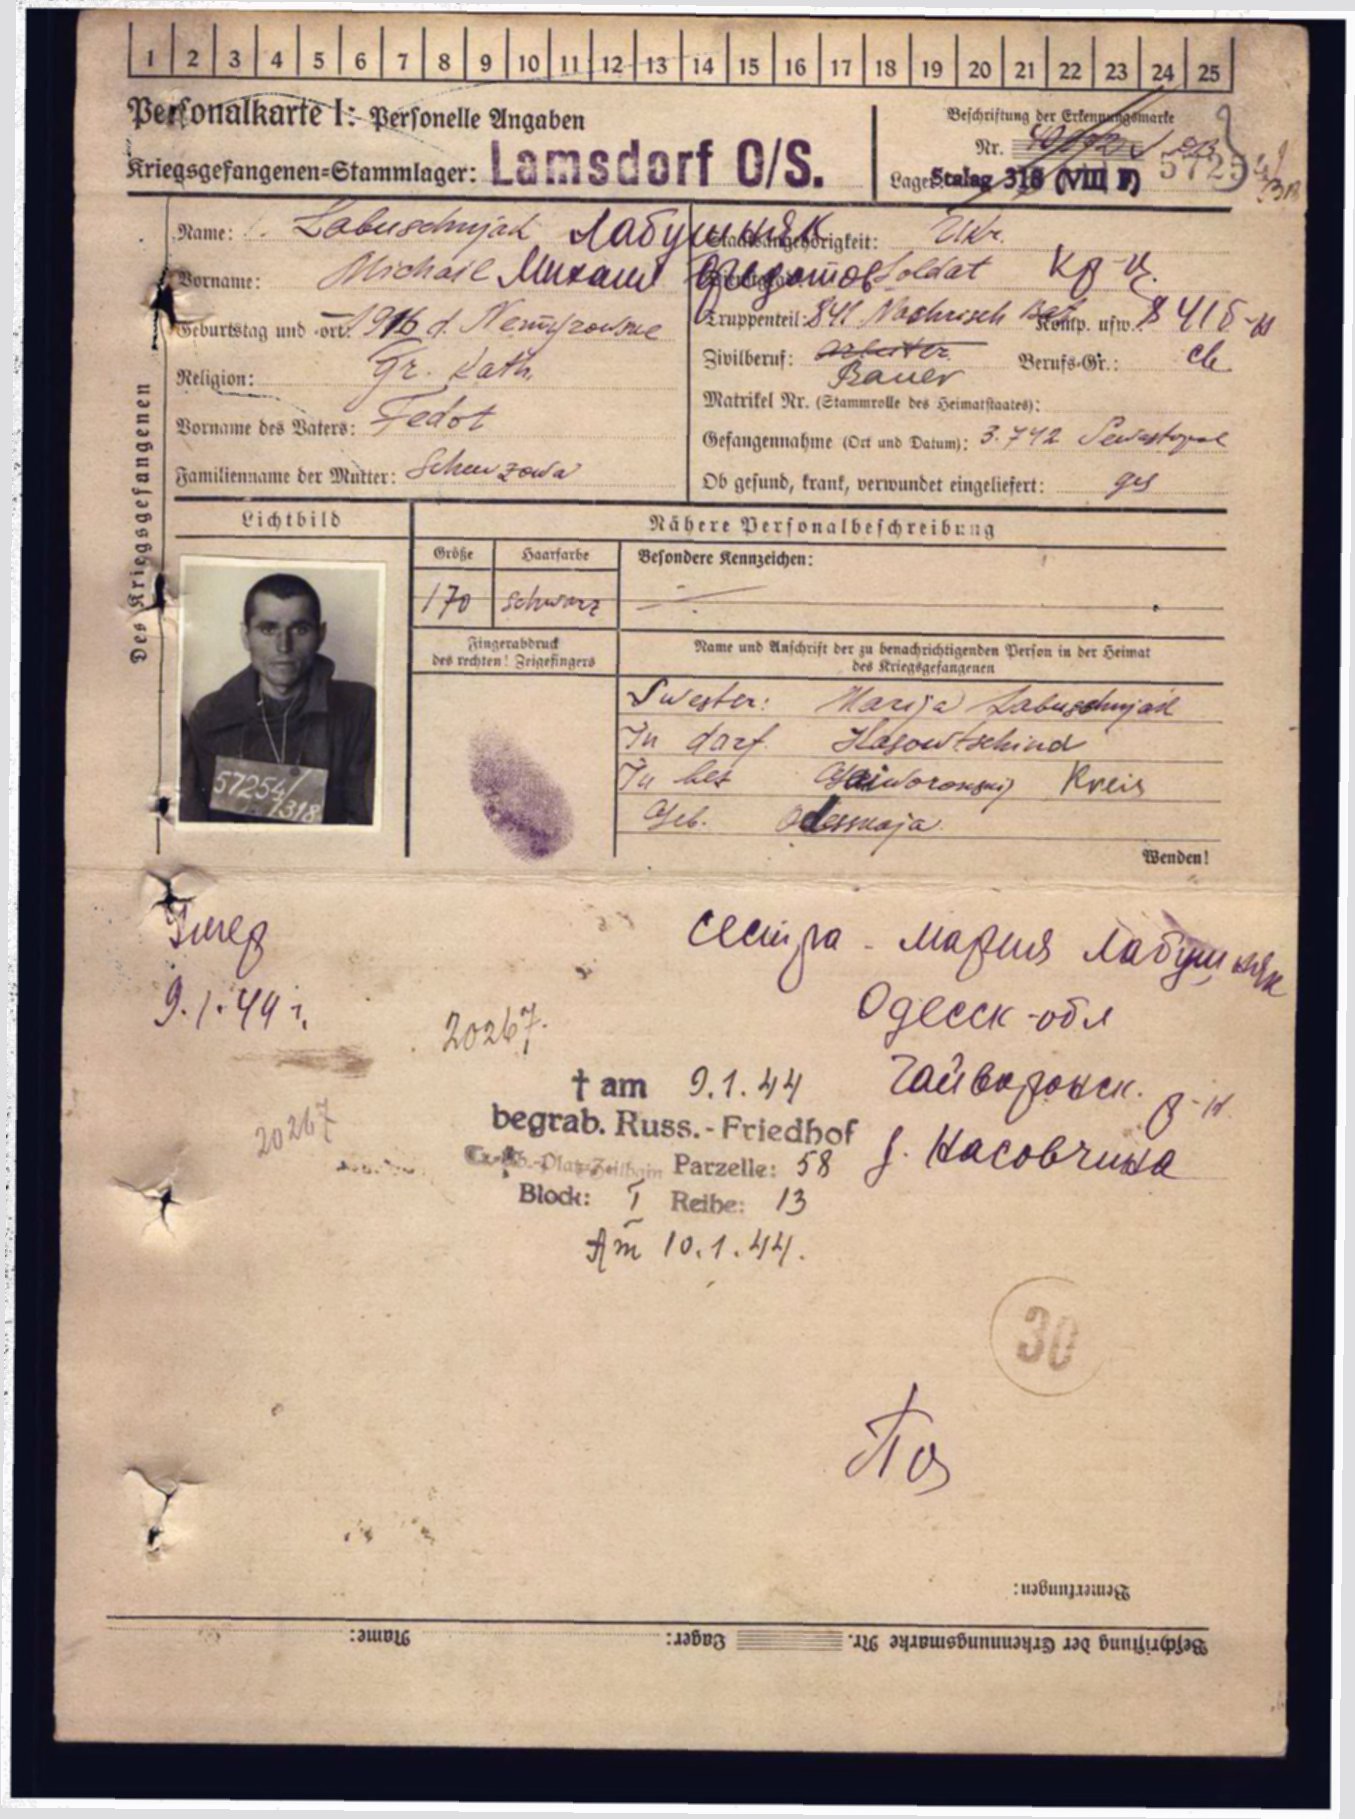 1 2 3 4 5 6 7 8 9 10 11 12 13 14 15 16 17 18 19 20 21 22 23 24 25
Personalkarte I: Personelle Angaben
Beschriftung der Erkennungsmarke
Kriegsgefangenen-Stammlager: Lamsdorf O/S.
Nr.
Lager: Stalag 318 (VIII F)
Des Kriegsgefangenen
Name: Labuschnjak Лабушняк
Vorname: Michail Михаил Федотов
Geburtstag und -ort: 1916 d.
Religion: Gr. Kath.
Vorname des Vaters: Fedot
Familienname der Mutter:
Staatsangehörigkeit: Ukr.
Soldat кр-ц.
Truppenteil: 841 Komp. usw.:
Zivilberuf: Arbeiter Berufs-Gr.:
Bauer
Matrikel Nr. (Stammrolle des Heimatstaates):
Gefangennahme (Ort und Datum): 3.7.42 Sewastopol
Ob gesund, krank, verwundet eingeliefert: ges
Lichtbild
Nähere Personalbeschreibung
Größe Haarfarbe Besondere Kennzeichen:
170 schwarz
Fingerabdruck
des rechten! Zeigefingers
Name und Anschrift der zu benachrichtigenden Person in der Heimat
des Kriegsgefangenen
Swester: Marija Labuschnjak
In darf Nasowtschina
In bes Gaiworonskij Kreis
Geb. Odesskaja
57254/
318
Wenden!
Умер
9.1.44 г.
сестра - Мария Лабушняк
Одесск-обл
Гайворонск. р-н.
д. Насовчина
20267.
20267
† am 9.1.44
begrab. Russ.-Friedhof
Tr.-Üb.-Platz Zeithain Parzelle: 58
Block: I Reihe: 13
Am 10.1.44.
30
Bemerkungen:
Beschriftung der Erkennungsmarke Nr. Lager: Name: